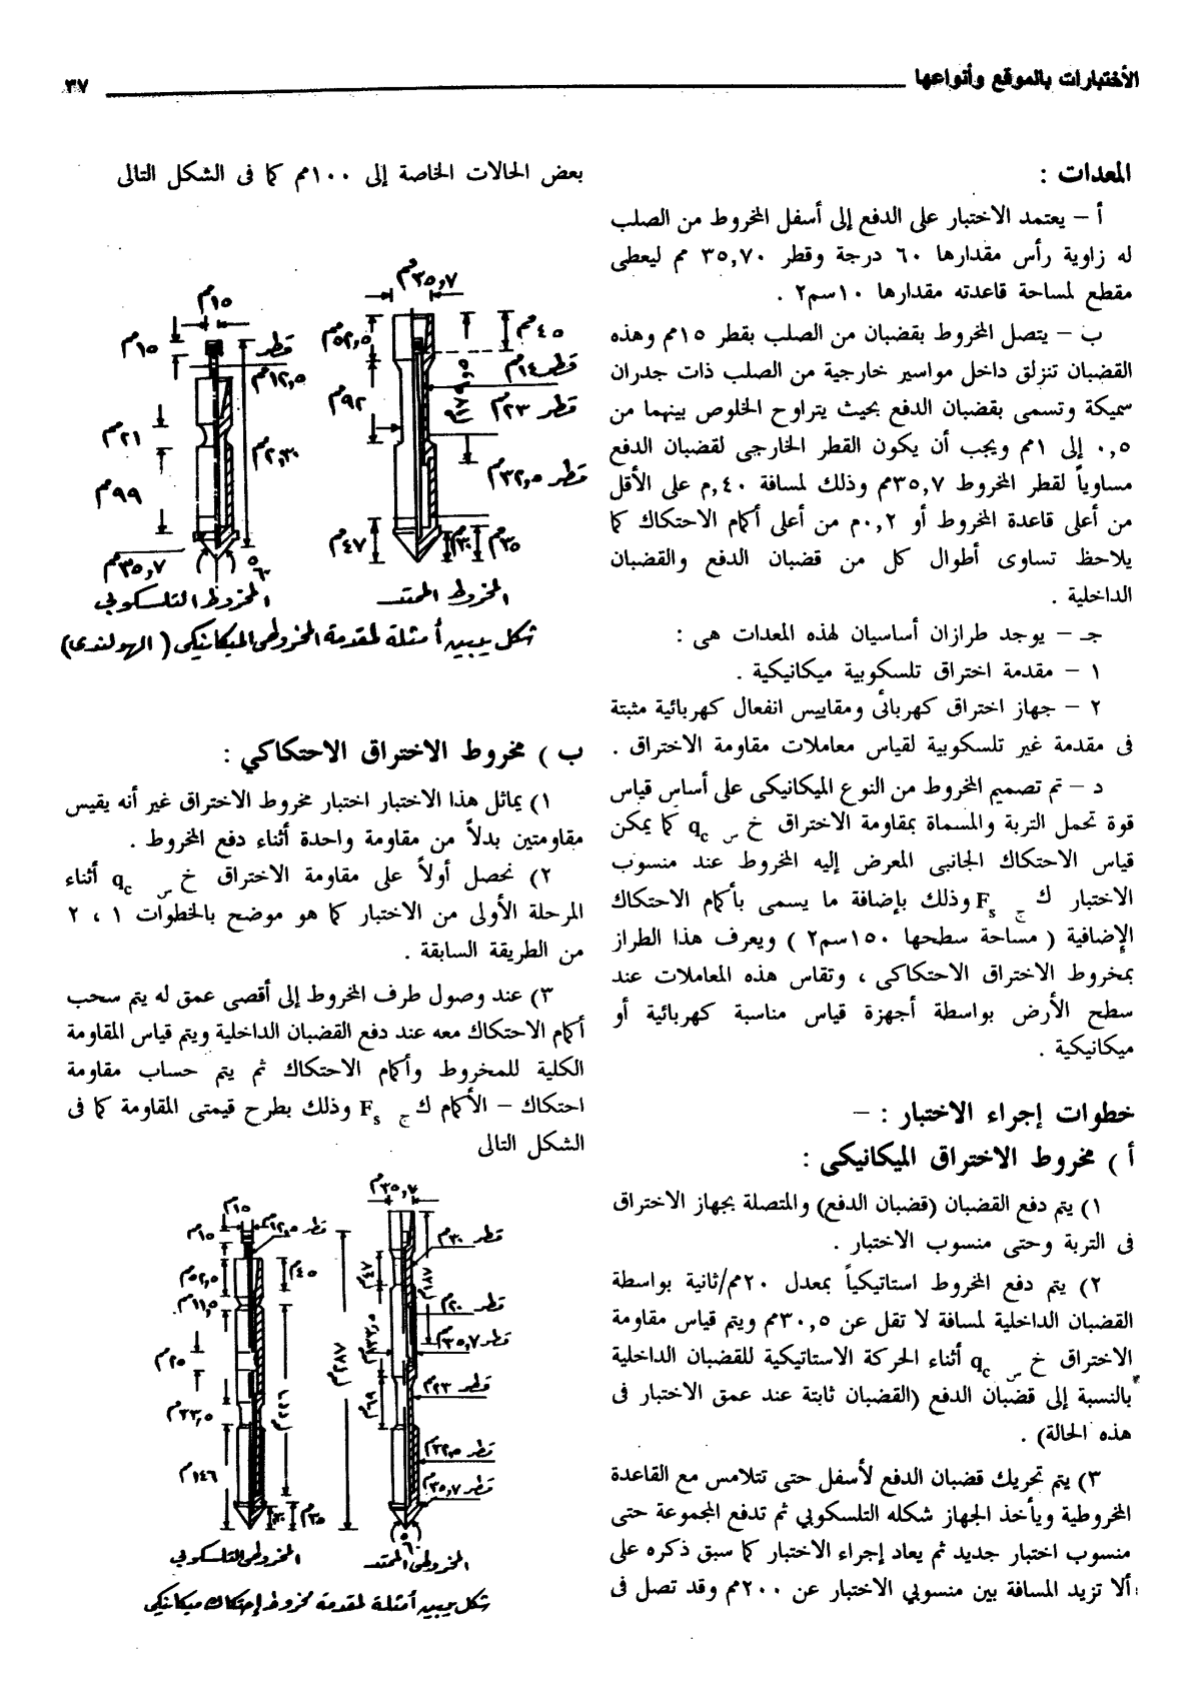 الأختبارات بالموقع وأنواعها
٣٧
المعدات :
أ – يعتمد الاختبار على الدفع إلى أسفل المخروط من الصلب
له زاوية رأس مقدارها ٦٠ درجة وقطر ٣٥,٧٠ مم ليعطى
مقطع لمساحة قاعدته مقدارها ١٠سم٢ .
ب – يتصل المخروط بقضبان من الصلب بقطر ١٥مم وهذه
القضبان تنزلق داخل مواسير خارجية من الصلب ذات جدران
سميكة وتسمى بقضبان الدفع بحيث يتراوح الخلوص بينهما من
٠,٥ إلى ١مم ويجب أن يكون القطر الخارجى لقضبان الدفع
مساوياً لقطر المخروط ٣٥,٧مم وذلك لمسافة ٤٠,م على الأقل
من أعلى قاعدة المخروط أو ٠,٢م من أعلى أكمام الاحتكاك كما
يلاحظ تساوى أطوال كل من قضبان الدفع والقضبان
الداخلية .
جـ – يوجد طرازان أساسيان لهذه المعدات هى :
١ – مقدمة اختراق تلسكوبية ميكانيكية .
٢ – جهاز اختراق كهربائى ومقاييس انفعال كهربائية مثبتة
فى مقدمة غير تلسكوبية لقياس معاملات مقاومة الاختراق .
د – تم تصميم المخروط من النوع الميكانيكى على أساس قياس
قوة تحمل التربة والمسماة بمقاومة الاختراق خ س qc كما يمكن
قياس الاحتكاك الجانبى المعرض إليه المخروط عند منسوب
الاختبار ك ج Fs وذلك بإضافة ما يسمى بأكمام الاحتكاك
الإضافية ( مساحة سطحها ١٥٠سم٢ ) ويعرف هذا الطراز
بمخروط الاختراق الاحتكاكى ، وتقاس هذه المعاملات عند
سطح الأرض بواسطة أجهزة قياس مناسبة كهربائية أو
ميكانيكية .
خطوات إجراء الاختبار : –
أ ) مخروط الاختراق الميكانيكى :
١) يتم دفع القضبان (قضبان الدفع) والمتصلة بجهاز الاختراق
فى التربة وحتى منسوب الاختبار .
٢) يتم دفع المخروط استاتيكياً بمعدل ٢٠مم/ثانية بواسطة
القضبان الداخلية لمسافة لا تقل عن ٣٠,٥مم ويتم قياس مقاومة
الاختراق خ س qc أثناء الحركة الاستاتيكية للقضبان الداخلية
بالنسبة إلى قضبان الدفع (القضبان ثابتة عند عمق الاختبار فى
هذه الحالة) .
٣) يتم تحريك قضبان الدفع لأسفل حتى تتلامس مع القاعدة
المخروطية ويأخذ الجهاز شكله التلسكوبي ثم تدفع المجموعة حتى
منسوب اختبار جديد ثم يعاد إجراء الاختبار كما سبق ذكره على
ألا تزيد المسافة بين منسوبي الاختبار عن ٢٠٠مم وقد تصل فى
بعض الحالات الخاصة إلى ١٠٠مم كما فى الشكل التالى
٣٥,٧مم
٤٥مم
٥٢,٥مم
قطر ١٤مم
٩٢مم
قطر ٢٣مم
قطر ٣٢,٥مم
٤٧مم
٣٠مم
٣٥مم
المخروط الممتد
١٥مم
١٥مم
قطر
١٢,٥مم
٢١مم
٩٩مم
٣٥,٧مم
٦٠°
المخروط التلسكوبي
شكل يبين أمثلة لمقدمة المخروطى الميكانيكى ( الهولندى )
ب ) مخروط الاختراق الاحتكاكي :
١) يماثل هذا الاختبار اختبار مخروط الاختراق غير أنه يقيس
مقاومتين بدلاً من مقاومة واحدة أثناء دفع المخروط .
٢) نحصل أولاً على مقاومة الاختراق خ س qc أثناء
المرحلة الأولى من الاختبار كما هو موضح بالخطوات ١ ، ٢
من الطريقة السابقة .
٣) عند وصول طرف المخروط إلى أقصى عمق له يتم سحب
أكمام الاحتكاك معه عند دفع القضبان الداخلية ويتم قياس المقاومة
الكلية للمخروط وأكمام الاحتكاك ثم يتم حساب مقاومة
احتكاك – الأكمام ك ج Fs وذلك بطرح قيمتى المقاومة كما فى
الشكل التالى
٣٥,٧مم
قطر ٣٠مم
قطر ٢٠مم
قطر ٣٥,٧مم
قطر ٢٣مم
قطر ٣٢,٥مم
قطر ٣٥,٧مم
٦٠°
المخروطى الممتد
١٥مم
١٥مم
قطر ١٢,٥مم
٥٢,٥مم
٤٥مم
١١,٥مم
٢٥مم
٣٣,٥مم
١٤٦مم
٣٥مم
المخروطى التلسكوبي
شكل يبين أمثلة لمقدمة مخروط إحتكاك ميكانيكى